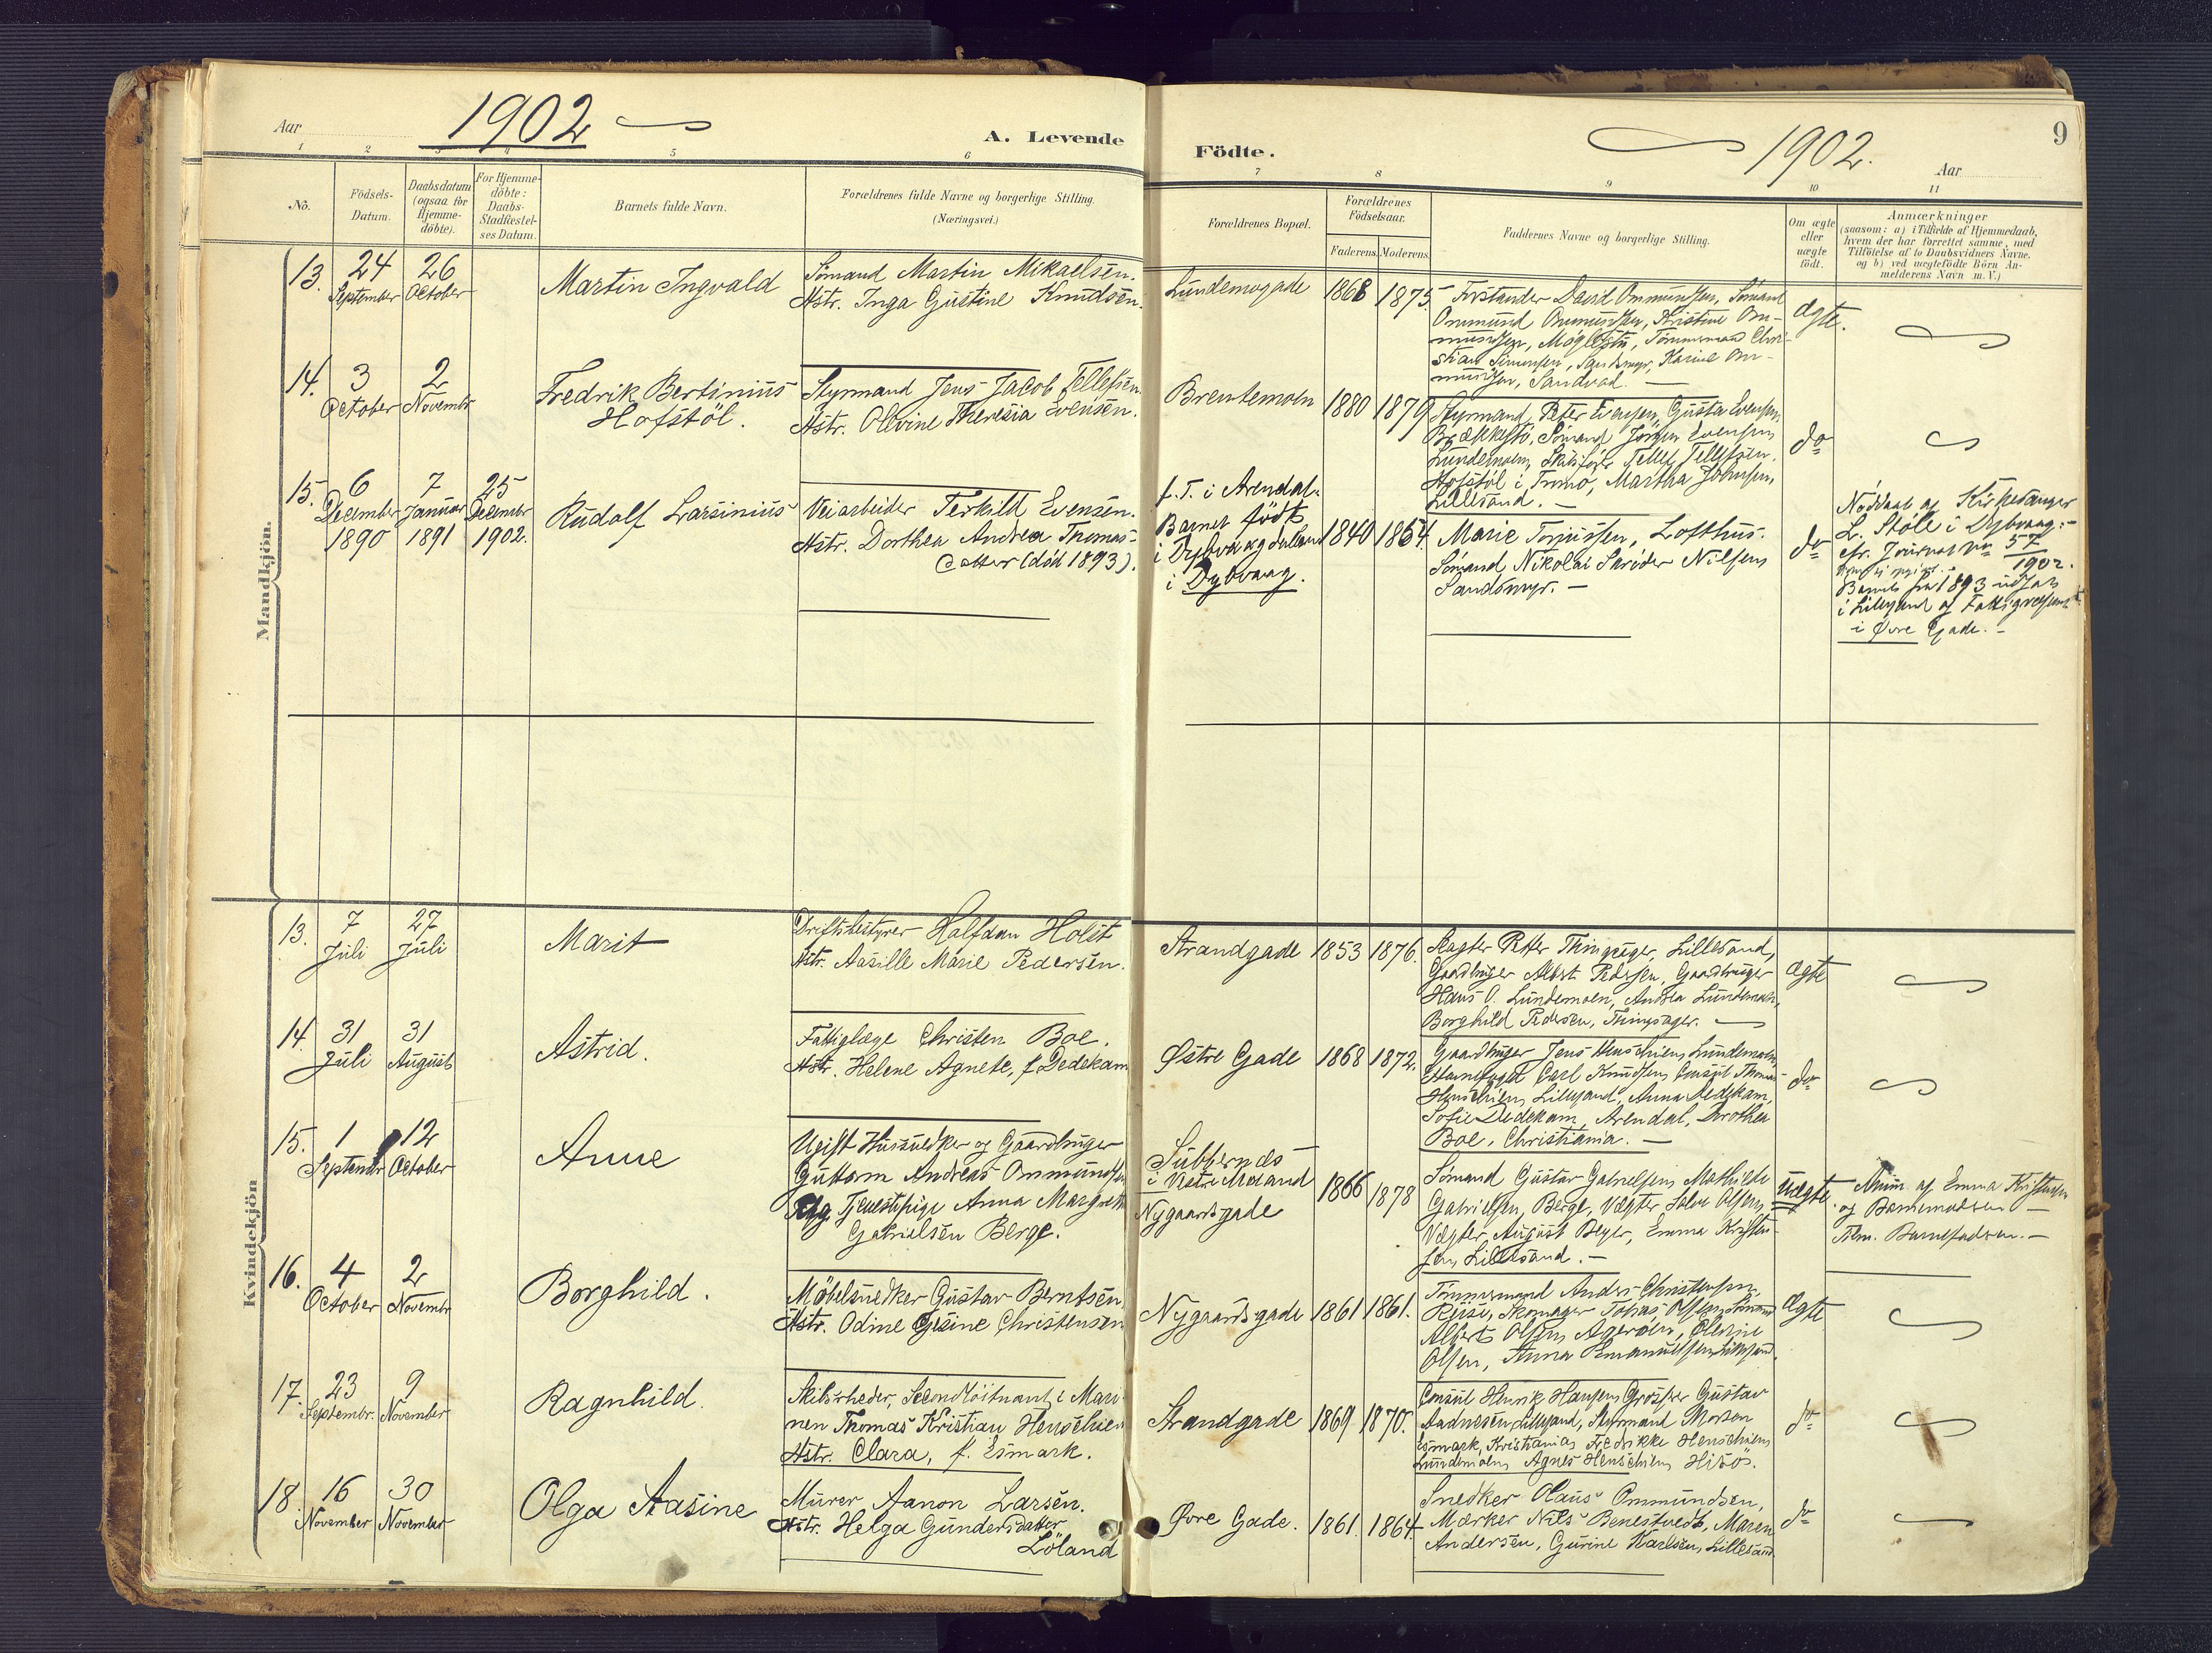 Aar 1902
A. Levende
Födte.
1902. Aar
9
1 2 3 4 5 6
7 8 9 10 11
No.
Födsels-
Datum.
Daabsdatum
(ogsaa for
Hjemme-
döbte).
For Hjemme-
döbte:
Daabs-
Stadfæstel-
ses Datum.
Barnets fulde Navn.
Forældrenes fulde Navne og borgerlige Stilling.
(Næringsvei.)
Forældrenes Bopæl.
Forældrenes
Födselsaar.
Faderens. Moderens.
Faddernes Navne og borgerlige Stilling.
Om ægte
eller
uægte
födt.
Anmærkninger
(saasom: a) i Tilfælde af Hjemmedaab,
hvem der har forrettet samme, med
Tilföielse af to Daabsvidners Navne.
og b) ved uægtefödte Börn An-
melderens Navn m. V.)
Mandkjön.
13. 24 September
26 October
Martin Ingvald
Sömand Martin Mikaelsen.
Hstr. Inga Gustine Knudsen.
Lundemogade
1868 1875
Forstander David Ommundsen, Sömand
Ommund Ommundsen, Kristine Om-
mundsen, Møglestu, Tömmermand Chri-
stian Simonsen, Sandsmyr, Karine Om-
mundsen, Sandvad. —
ægte.
14. 3 October
2 Novembr
Fredrik Bertinius
Hofstöl.
Styrmand Jens Jacob Tellefsen
Hstr. Olevine Theresia Evensen.
Brentemoln
1880 1879
Styrmand Peter Evensen, Gusta Evensen,
Brækkestö, Sömand Jörgen Evensen
Lundemoen, Skibsförer Tellef Tellefsen,
Hofstöl i Tromö, Martha Johnsen,
Lillesand. —
do
15. 6 December 1890
7 Januar 1891
25 Decembr 1902.
Rudolf Larsinius
Veiarbeider Terkild Evensen.
Hstr. Dorthea Andrea Thomas-
datter (död 1893).
f. T. i Arendal.
Barnet födt
i Dybvaag
i Dybvaag.
1840 1854.
Marie Torjussen, Lofthus.
Sömand Nikolai Skröder Nilsen
Sandsmyr. —
do
Nöddaab af Kirkesanger
L. Stöle i Dybvaag. -
cfr. Journal No 57
1902.
Barnet fra 1893 udsat
i Lillesand af Fattigvæsenet
i Øvre Gade. -
Kvindekjön
13. 7 Juli
27 Juli
Marit
Driftsbestyrer Halfdan Holst
Hstr. Aasille Marie Pedersen.
Strandgade
1853 1876.
Slagter Petter Thingsager, Lillesand,
Gaardbruger Albert Pedersen, Gaardbruger
Hans O. Lundemoen, Andrea Lundemoen,
Borghild Pedersen, Thingsager. —
ægte
14. 31 Juli
31 August
Astrid.
Fattiglæge Christen Boe.
Hstr. Helene Agnete, f. Dedekam
Østre Gade
1868 1872.
Gaardbruger Jens Henschien, Lundemoen,
Havnefoged Carl Knudsen, Consul Thomas
Henschien, Lillesand, Anna Dedekam,
Sofie Dedekam, Arendal, Dorothea
Boe, Christiania. —
do
15. 1 Septembr
12 October
Anne
Ugift Hussnedker og Gaardbruger
Guttorm Andreas Ommundsen
og Tjenestepige Anna Margrethe
Gabrielsen Berge.
i Vestre Moland
Nygaardsgade
1866 1878
Sömand Gustav Gabrielsen, Mathilde
Gabrielsen, Berge, Vægter Salve Olsen,
Vægter August Beyer, Emma Kristen-
sen, Lillesand. —
uægte.
Anm. af Emma Kristensen
og Barnemoderen —
Frem. Barnefaderen. —
16. 4 October
2 Novembr
Borghild.
Møbelsnedker Gustav Berntsen,
Hstr. Odine Gesine Christensen
Nygaardsgade
1861 1861.
Tömmermand Anders Christensen,
Skomager Tobias Olsen, Sömand
Albert Olsen, Ageröen, Olevine
Olsen, Anna Emanuelsen, Lillesand.
ægte
17. 23 Septembr.
9 November
Ragnhild.
Skibsrheder, Secondlöitnant i Mari-
nen Thomas Kristian Henschien
Hstr. Clara, f. Esmark.
Strandgade
1869 1870.
Consul Henrik Hansen, Grosser Gustav
Aadnesen, Lillesand, Styrmand Morten
Esmark, Kristiania, Fredrikke Henschien
Lundemoen, Agnes Henschien, Hisö.
do
18. 16 November
30 November
Olga Aasine
Murer Aanon Larsen.
Hstr. Helga Gundersdatter
Löland
Øvre Gade.
1861. 1864.
Snedker Olaus Ommundsen,
Mærker Nils Benestvedt, Maren
Andersen, Gurine Karlsen, Lillesand
do